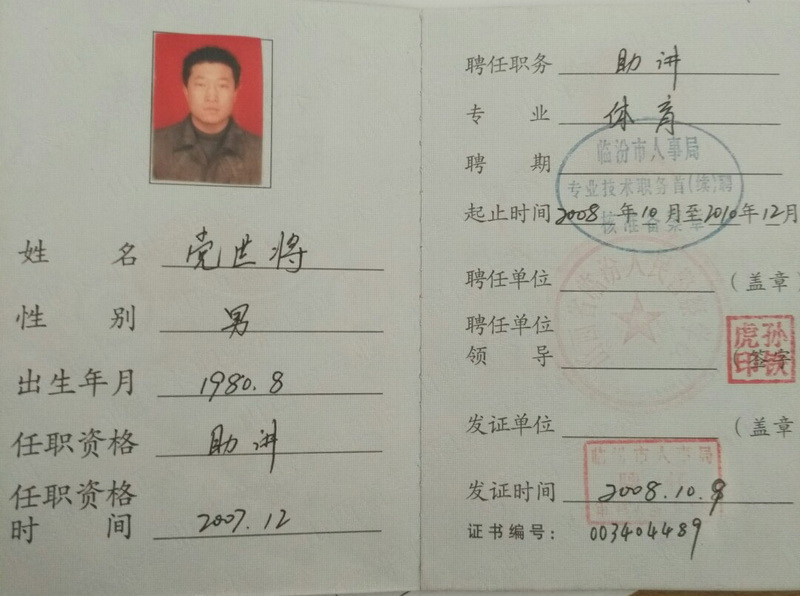 姓名 党世将
性别 男
出生年月 1980.8
任职资格 助讲
任职资格时间 2007.12
聘任职务 助讲
专业 体育
聘期
临汾市人事局
专业技术职务首(续)聘
核准备案章
起止时间 2008年10月至2010年12月
聘任单位 (盖章
聘任单位领导 (签字
孙铁虎印
发证单位 (盖章
临汾市人事局
发证时间 2008.10.9
证书编号: 003404489